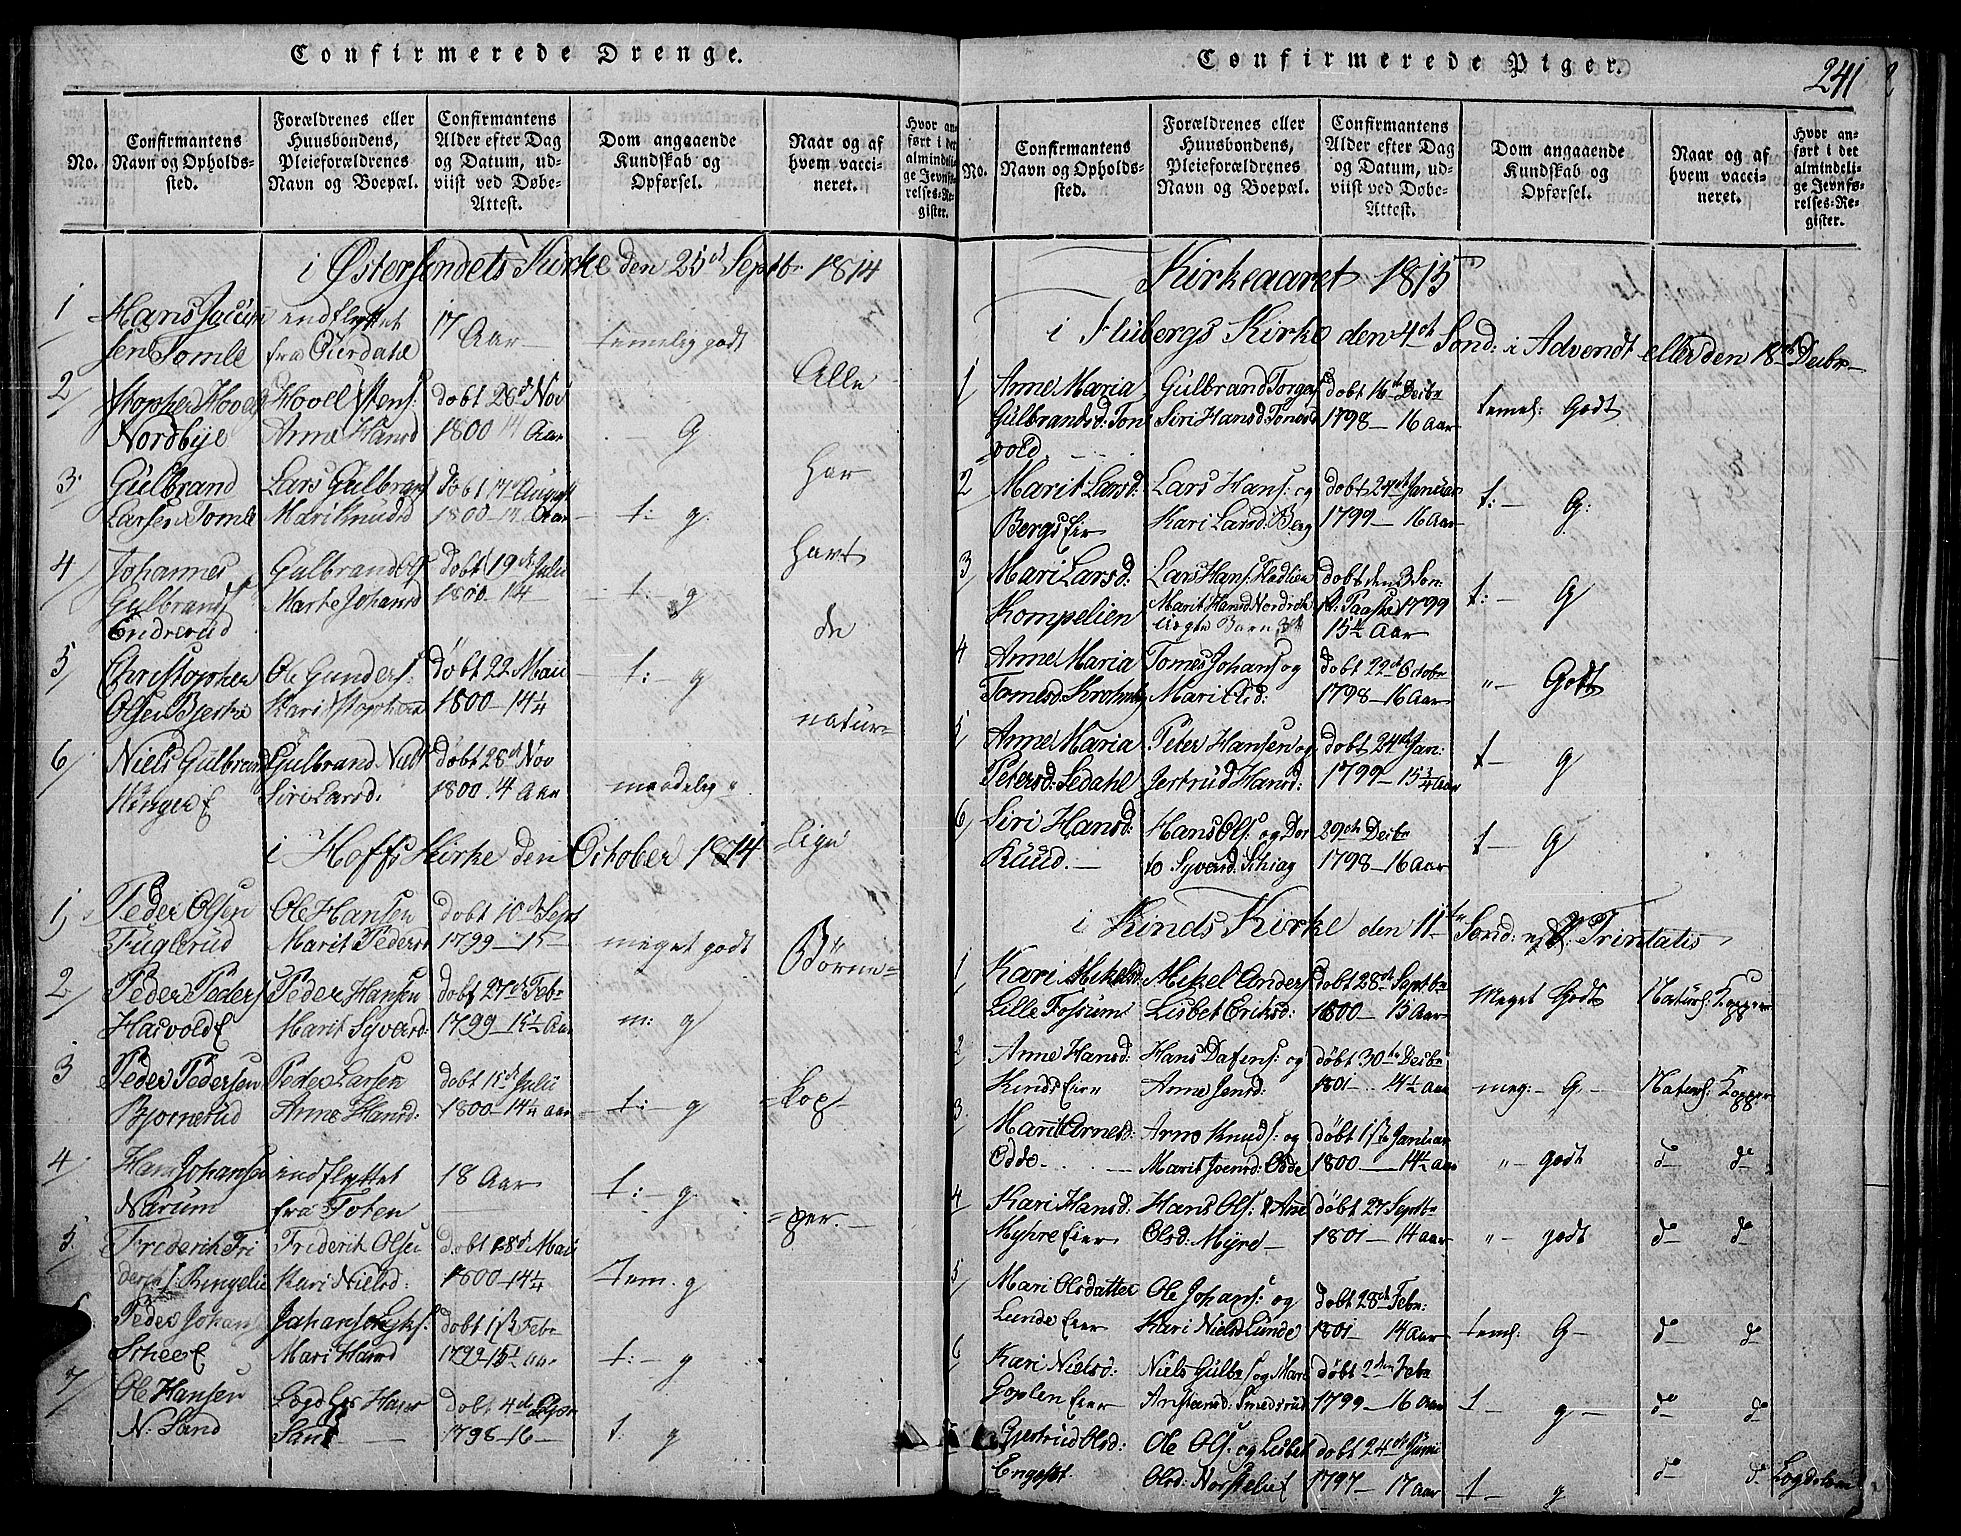 Confirmerede Drenge.
No.
Confirmantens
Navn og Opholds-
sted.
Forældrenes eller
Huusbondens,
Pleieforældrenes
Navn og Boepæl.
Confirmantens
Alder efter Dag
og Datum, ud-
viist ved Døbe-
Attest.
Dom angaaende
Kundskab og
Opførsel.
Naar og af
hvem vacci-
neret.
Hvor an-
ført i det
almindeli-
ge Jevnfø-
relses-Re-
gister.
i Østersindets Kirke den 25d Septbr 1814
1
Hans
sen Tomle
indflyttet
fra
17
Aar
temelig godt
2
Hovel
Nordbye
Hovel Stens:
Anne Hansd
døbt 26d Nov
1800 14 Aar
G
3
Gulbrand
Larsen Tomle
Lars Gulbrans
Mari Knudsd
døbt 17d August
1800 - 14 Aar
t: g.
4
Johannes
Gulbrands
Endrerud
Gulbrand
Marte Johansd
døbt 19de Julii
1800 - 14
t: - g
5
Christopher
Olsen
Ole Gunders:
Kari
Døbt 22 Maii
1800 - 14¼
t: - g
6
Niels Gulbrand
Gulbrand
Siri Larsd:
Døbt 28d Nov
1800. 14 Aar
maadelig
Alle
har
havt
de
natur-
lige
Børne-
kop-
per.
i Hoffs Kirke den October 1814
1
Peder Olsen
Fuglerud
Ole Hansen
Marit Pedersd
døbt 10de Sept
1799 - 15
meget godt
2
Peder Peders
Peder Hansen
Marit Syversd:
døbt 27de Febr
1799 - 15½ Aar
m: g
3
Peder Pedersen
Bjørnerud
Peder Larsen
Anne Hansd:
døbt 15de Julii
1800 - 14¼ Aar
t: - g
4
Hans Johansen
Narum
indflyttet
fra Toten
18 Aar
t: - g.
5.
Frederik Fri
Frederik Olsen
Kari Nielsd:
døbt 18d Maii
1800 - 14¼
Tem. g
6
Peder Johans
Mari Hansd
døbt 1ste Febr
1799 15½ Aar
t: - g
7
Ole Hansen
N: Sand
Hans
Sand
døbt 4de
1798 - 16
t. g
Confirmerede Piger.
241
No.
Confirmantens
Navn og Opholds-
sted.
Forældrenes eller
Huusbondens,
Pleieforældrenes
Navn og Boepæl.
Confirmantens
Alder efter Dag
og Datum, ud-
viist ved Døbe-
Attest.
Dom angaaende
Kundskab og
Opførsel.
Naar og af
hvem vacci-
neret.
Hvor an-
ført i det
almindeli-
ge Jevnfø-
relses-Re-
gister.
Kirkeaaret 1815
i Flubergs Kirke den 4de Sond: i Advendt eller den 18de Decbr
1
Anne Maria
Gulbrandsd: Ton
vold
Gulbrand Torgers
Siri Hansd:
døbt 16de Decbr
1798 - 16 Aar
temel: Godt
2
Marit Larsd:
Bergs Eier
Lars Hans: og
Kari Larsd: Berg
døbt 24de Januar
1799 - 16 Aar
t: - G:
3
Mari Larsd:
Kompelien
Lars Hans: Hadlien
Marit Hansd
Barn
døbt den 3 Son:
Paaske 1799
15¼ Aar
t: - G
4
Anne Maria
Tomesd:
Tomes Johans og
Mari Olsd:
døbt 22de Octobr
1798 - 16 Aar
" - Godt
5
Anne Maria
Petersd: Sedahl
Peter Hansen og
Jertrud Hansd:
døbt 24de Jan:
1799 - 15¾ Aar
t - g
6
Siri Hansd:
Ruud. -
Hans Ols: og Dor
to Syversd: Schiag
29de Decbr
1798 - 16 Aar
t - g
i Kinds Kirke den 11te Sond: Trinitatis
1
Kari Mikelsd
Lille Fossum
Mikel Anders
Lisbet Eriksd:
døbt 28de Septbr
1800 - 15 Aar
Meget Godt
Naturl: Kopper
2
Anne Hansd:
Kinds Eier
Hans Dafens: og
Anne Jensd:
døbt 30te Decbr
1801 - 14½ Aar
meg: - G -
Naturl: Kopper
3.
Marit Arnesd:
Odde
Arne Knuds: og
Marit Joensd: Odde
døbt 1ste Januar
1800 - 14½ Aar
" - godt
do do
4
Kari Hansd:
Myhre Eier
Hans Ols: & Ane
Olsd: Myre -
døbt 27 Septbr
1801 - 14 Aar
" - godt
do do
5
Mari Olsdatter
Lunde Eier
Ole Johans: og
Kari Nielsd Lunde
døbt 28de Febr:
1801 - 14 Aar
temel: G -
do do
6
Kari Nielsd:
Goplen Eier
Niels Gulbr: og Mari
Anstensd: Smedsrud
døbt 2den Febr
1799 - 16 Aar
t - g -
do do
Gjertrud Olsd:
Ole Ols: og Lisbet
Olsd:
døbt 24de Junii
1797 - 17 Aar
t - g
do do